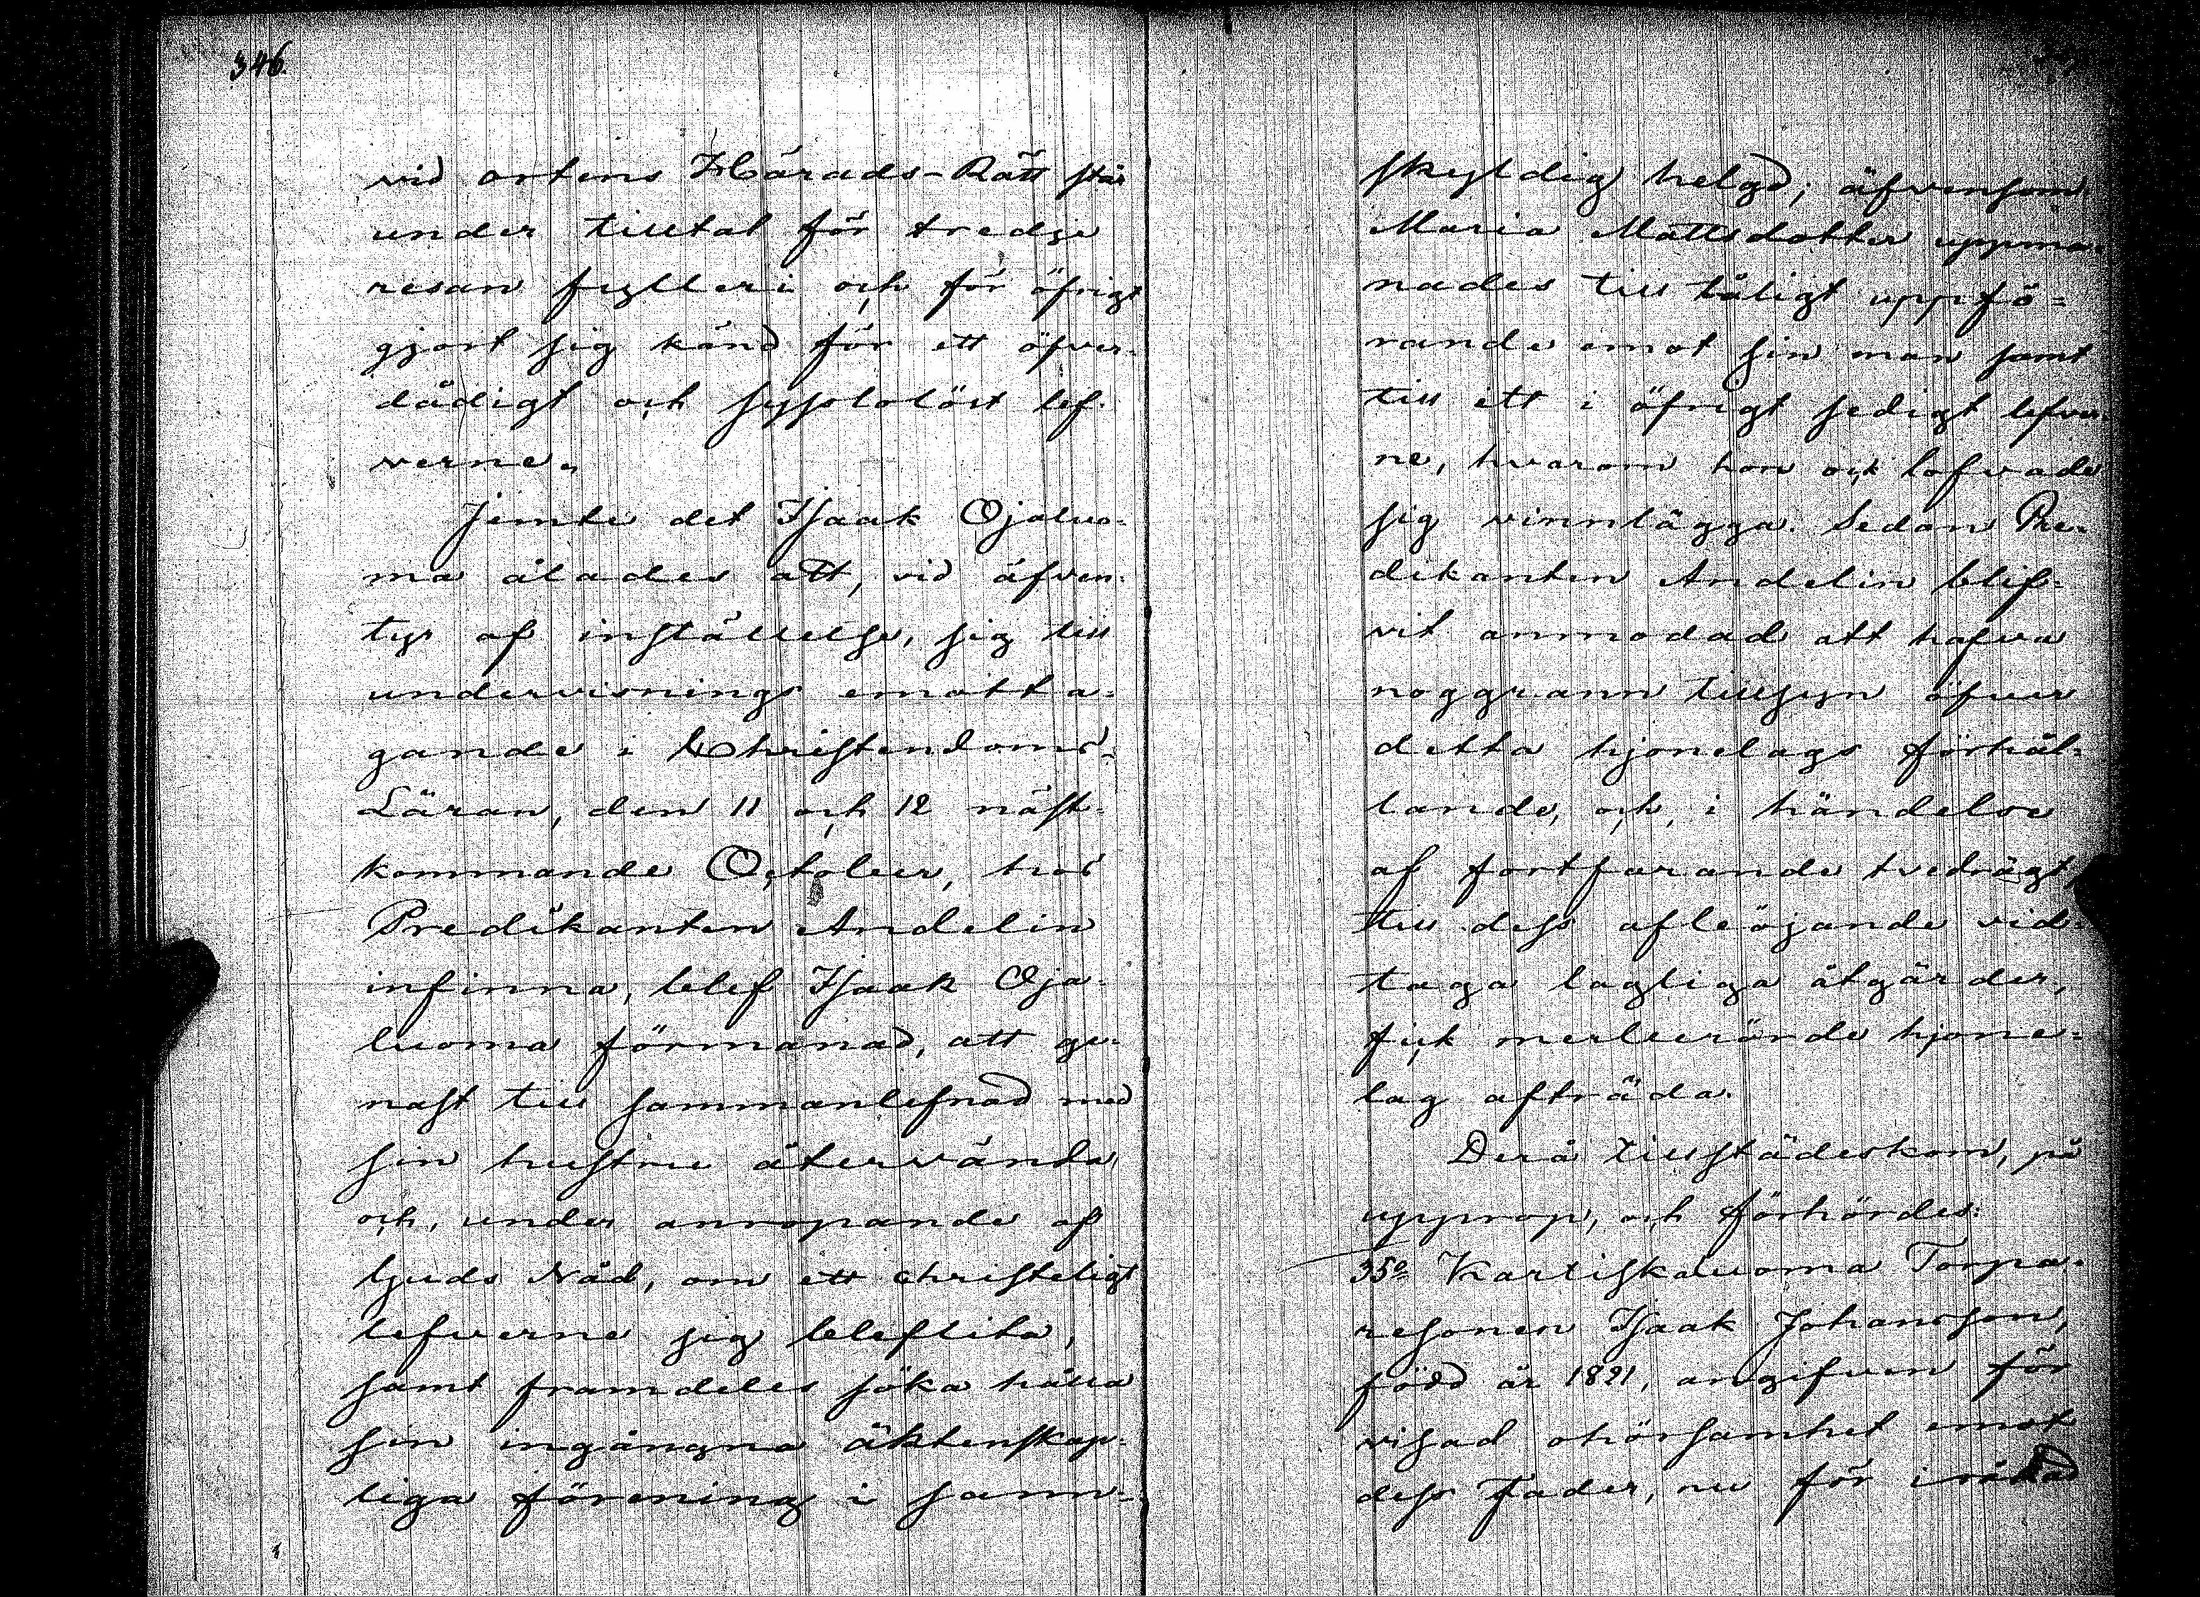 346.
vid ortens Härads-Rätt står
under tilltal för tredje
resan fylleri och för öfrigt
gjort sig känd för ett öfver-
dådigt och syssłolöst lef-
verne.
Jemte det Isaak Ojaluo-
ma ålades att, vid äfven-
tyr af inställelse, sig till
undervisnings emotta-
gande i Christendoms-
Läran, den 11 och 12 näst-
kommande October, hos
Predikanten Andelin
infinna, blef Isaak Oja-
luoma förmanad, att ge-
nast till sammanlefnad med
sin hustru återvända
och, under anropande af
Guds Nåd, om ett christeligt
lefverne sig beflita,
samt framdeles söka hålla
sin ingångna äktenskap-
liga förening i sam-
skyldig helgd; äfvensom
Maria Mattsdotter uppma-
nades till tåligt uppfö=
rande emot sin man samt
till ett i öfrigt sedigt lefver-
ne, hvarom hon ock lofvade
sig vinnlägga. Sedan Pre-
dikanten Andelin blif-
vit anmodad att hafva
noggrann tillsyn öfver
detta hjonelags förhål-
lande, och, i händelse
af fortfarande tvedrägt,
till dess afböjande vid-
taga lagliga åtgärder,
fick merberörde hjone-
lag afträda.
Derå tillstädeskom, på
upprop, och förhördes:
35º Kartiskaluoma Torpa-
resonen Isaak Johansson,
född år 1821, angifven för
visad ohörsamhet emot
dess Fader, nu för iråkad